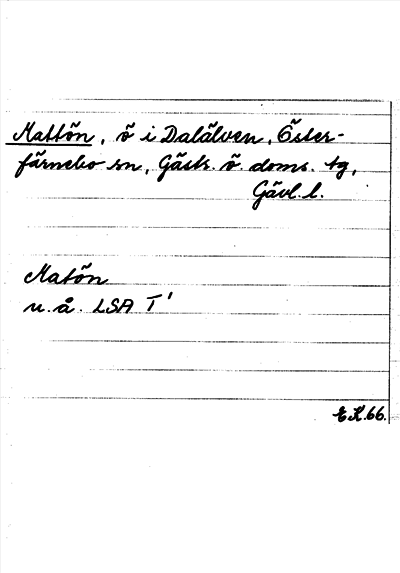 Mattön, ö i Dalälven, Öster-
färnebo sn, Gästr. ö. doms. tg,
Gävl. l.
Matön
u. å. LSA T'
E.K.66.